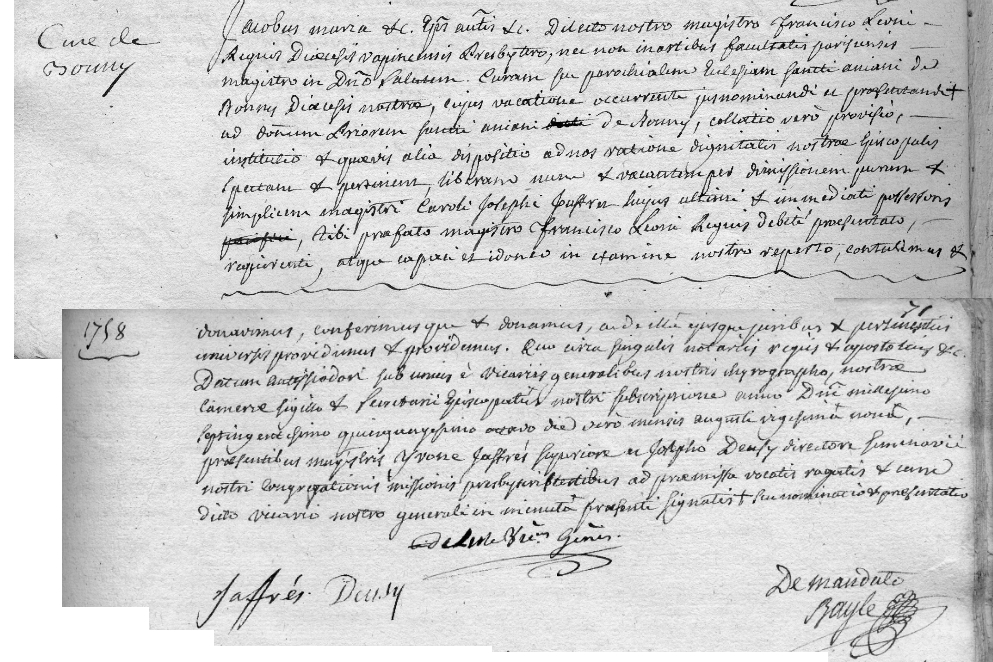 Cure de
Bonny
Jacobus maria &c. Epūs autis &c. Dilecto nostro magistro francisco Leoni
Reguis Dioecesis vapincensis Presbytero, nec non in artibus facultatis parisiensis
magistro in Dnō Salutem. Curam seu parochialem Ecclesiam sancti aniani de
Bonny Dioecesis nostrae, cujus vacatione occurrente jus nominandi et praesentandi +
ad domum Priorem sancti aniani de Bonny, collatio verò provisio,
institutio & quaevis alia dispositio ad nos ratione dignitatis nostrae Episcopalis
spectant & pertinent, liberam nunc & vacantem per dimissionem puram &
simplicem magistri Caroli Josephi Jaffres hujus ultimi & immediati possessoris
, tibi praefato magistro francisco Leoni Reguis debitè praesentato,
requirenti, atque capaci et idoneo in examine nostro reperto, contulimus &
71
1758
donavimus, conferimusque & donamus, ac de illâ ejusque juribus & pertinentiis
universis providimus & providemus. Quo circa singulis notariis regiis & apostolicis &c.
Datum autissiodori sub unius è vicariis generalibus nostris chyrographo, nostrae
Camerae sigillo & Secretarii Episcopatûs nostri subscriptione anno Dnī millesimo
septingentesimo quinquagesimo octavo die verò mensis augusti vigesimâ nonâ,
praesentibus magistris Yvone Jaffrés superiore et Josepho Deusy directore seminarii
nostri congregationis missionis presbyteris testibus ad praemissa vocatis rogatis & cum
dicto vicario nostro generali in minutâ praesenti signatis + seu nominatio & praesentatio
Vics Gēnis.
Jaffrés. Deusy
De mandato
Bayle